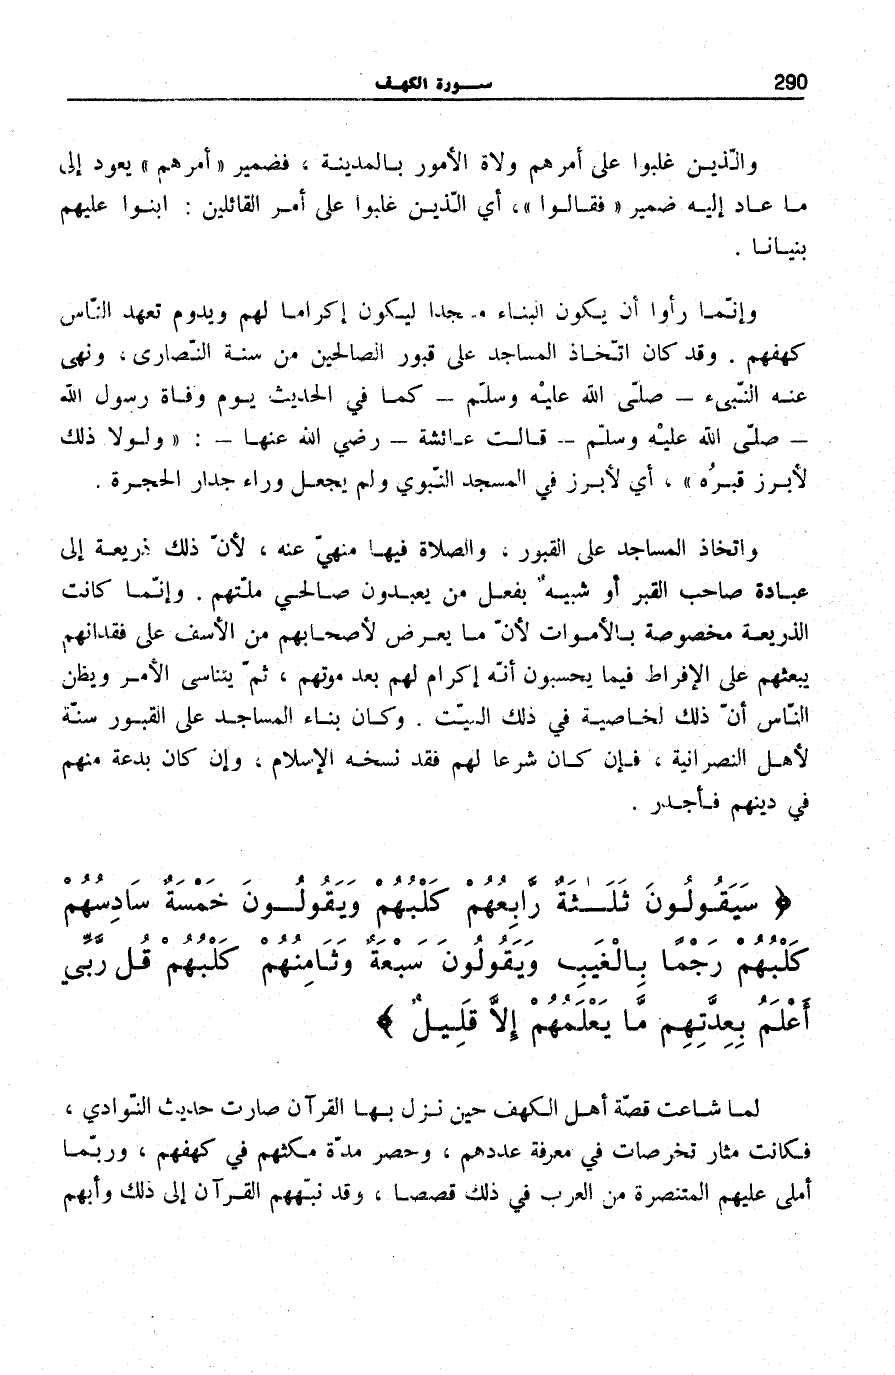 290 ســورة الكهـف
والّذيـن غلبوا على أمرهم ولاة الأمور بـالمدينـة ، فضمير « أمرهم » يعود إلى
مـا عـاد إليـه ضمير « فقـالـوا »، أي الّذيـن غلبوا على أمـر القائلين : ابنـوا عليهم
بنيـانـا .
وإنّمـا رأوا أن يـكون البنـاء مسجدا ليـكون إكرامـا لهم ويدوم تعهد النّاس
كهفهم . وقد كان اتّخـاذ المساجد على قبور الصالحين من سنـة النّصارى، ونهى
عنـه النّبىء – صلّى الله عليْه وسلّم – كمـا في الحديث يـوم وفـاة رسول الله
– صلّى الله عليْه وسلّم – قـالـت عـائشة – رضي الله عنهـا – : « ولـولا ذلك
لأبـرز قبـرُه » ، أي لأبـرز في المسجد النّبوي ولم يجعـل وراء جدار الحجـرة .
واتخاذ المساجد على القبور ، والصلاة فيهـا منهيّ عنه ، لأنّ ذلك ذريعـة إلى
عبـادة صاحب القبر أو شبيـهٌ بفعـل من يعبـدون صـالحـي ملّتهم . وإنّمـا كانت
الذريعـة مخصوصة بـالأمـوات لأنّ مـا يعـرض لأصحـابهم من الأسف على فقدانهم
يبعثهم على الإفراط فيما يحسبون أنّه إكرام لهم بعد موتهم ، ثمّ يتناسى الأمـر ويظن
النّاس أنّ ذلك لخـاصيـة في ذلك الميّت . وكـان بنـاء المساجـد على القبـور سنّة
لأهـل النصرانية ، فـإن كـان شرعا لهم فقد نسخـه الإسلام ، وإن كان بدعة منهم
في دينهم فـأجـدر .
﴿ سَيَقُولُونَ ثَلَـٰـثَةٌ رَّابِعُهُمْ كَلْبُهُمْ وَيَقُولُـونَ خَمْسَةٌ سَادِسُهُمْ
كَلْبُهُمْ رَجْمًا بِـالْغَيْبِ وَيَقُولُونَ سَبْعَةٌ وَثَـامِنُهُمْ كَلْبُهُمْ قُـل رَّبِّي
أَعْلَمُ بِعِدَّتِهِم مَّا يَعْلَمُهُمْ إِلاَّ قَلِيـلٌ ﴾
لمـا شـاعت قصّة أهـل الـكهف حين نـزل بـهـا القرآن صارت حديث النّوادي ،
فـكانت مثار تخرصات في معرفة عددهم ، وحصر مدّة مـكثهم في كهفهم ، وربّمـا
أملى عليهم المتنصرة من العرب في ذلك قصصـا ، وقد نبّههم القـرآن إلى ذلك وأبهم